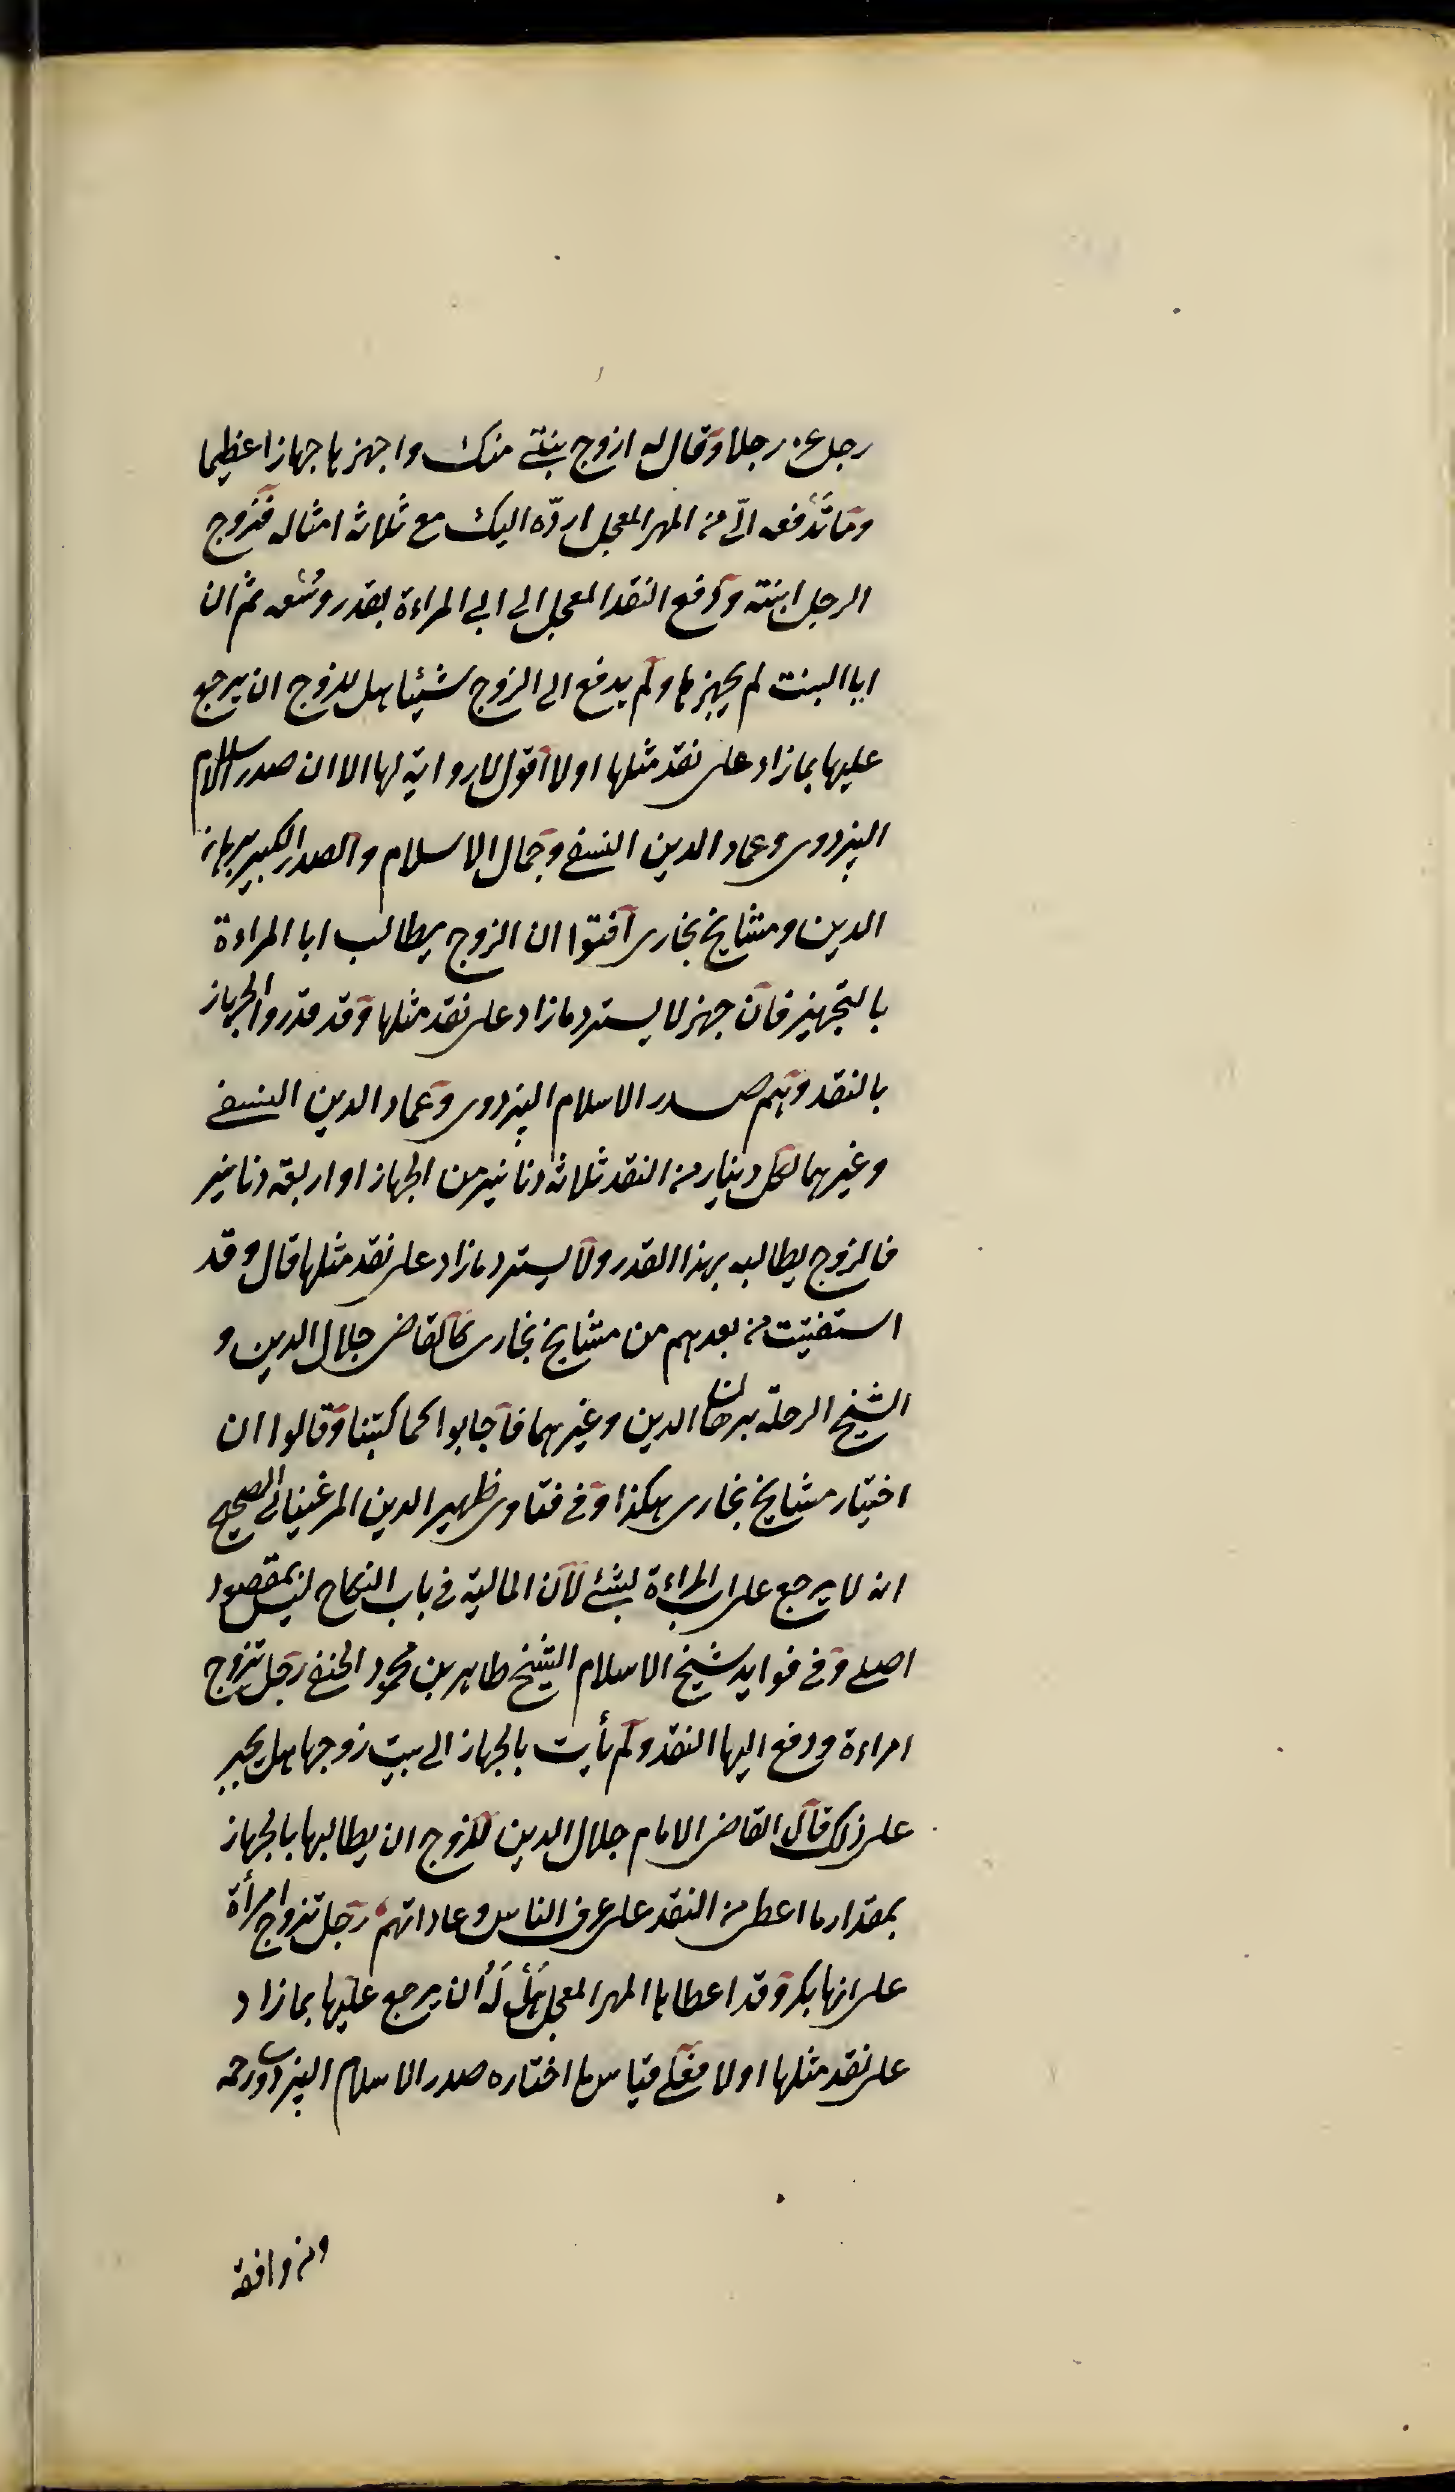 رجل غر رجلا وقال له ازوج بنتي منك واجهزها جهازا عظيما
وما تدفعه الىّ من المهر المعجل اردّه اليك مع ثلاثة امثاله فتزوج
الرجل ابنته ودفع النقد المعجل الى ابي المراءة بقدر وُسْعه ثم ان
ابا البنت لم يجهزها ولم يدفع الى الزوج شيئا هل للزوج ان يرجع
عليها بما زاد على نقد مثلها اولا اقول لا رواية لها الا ان صدر الاسلام
البزدوى وعماد الدين النسفي وجمال الاسلام والصدر الكبير برهان
الدين ومشايخ بخارى افتوا ان الزوج يطالب ابا المراءة
بالتجهيز فان جهز لا يسترد ما زاد على نقد مثلها وقد قدروا الجهاز
بالنقد وهم صدر الاسلام البزدوى وعماد الدين النسفي
وغيرهما لكل دينار من النقد ثلاثة دنانير من الجهاز او اربعة دنانير
فالزوج يطالبه بهذا القدر ولا يسترد ما زاد على نقد مثلها قال وقد
استفتيت من بعدهم من مشايخ بخارى كالقاضى جلال الدين و
الشيخ الرحلة برهان الدين وغيرهما فاجابوا كما كتبنا وقالوا ان
اختيار مشايخ بخارى هكذا وفي فتاوى ظهير الدين المرغيناني الصحيح
انه لا يرجع على اب المراءة بشئ لان المالية في باب النكاح ليس بمقصود
اصلي وفي فوايد شيخ الاسلام الشيخ طاهر بن محمود الحنفي رجل تزوج
امراءة ودفع اليها النقد ولم تأت بالجهاز الى بيت زوجها هل يجبر
على ذلك قال القاضى الامام جلال الدين للزوج ان يطالبها بالجهاز
بمقدار ما اعطى من النقد على عرف الناس وعاداتهم رجل تزوج امرأة
على انها بكر وقد اعطاها المهر المعجل هَلْ لَهُ ان يرجع عليها بما زاد
على نقد مثلها اولا فعلى قياس ما اختاره صدر الاسلام البزدوى رحمه
ومن وافقه